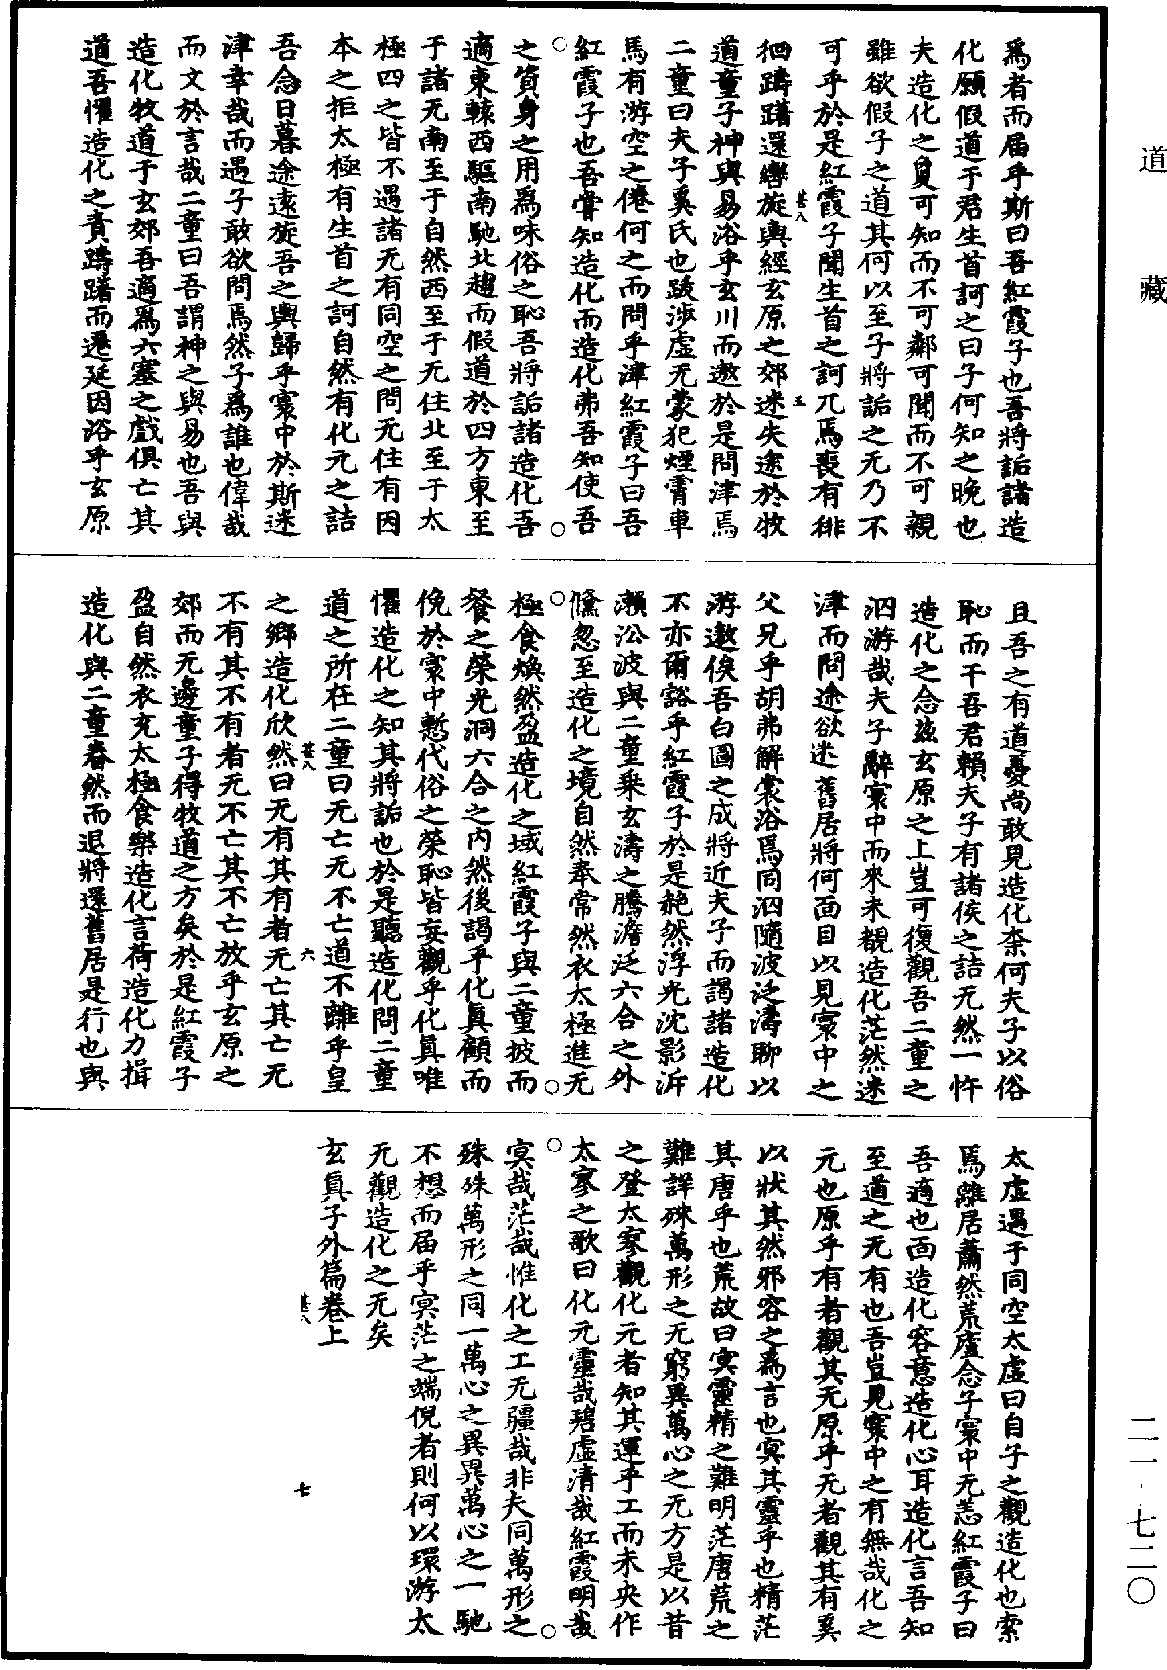 道藏
爲者而届乎斯曰吾紅霞子也吾將詬諸造
化願假道于君生首訶之曰子何知之晚也
夫造化之負可知而不可鄰可聞而不可親
雖欲假子之道其何以至子將詬之无乃不
可乎於是紅霞子聞生首之訶兀焉喪有徘
徊躊躇還轡旋輿經玄原之郊迷失途於牧
道童子神與易浴乎玄川而遨於是問津焉
二童曰夫子奚氏也跋涉虛无蒙犯煙霄車
馬有游空之倦何之而問乎津紅霞子曰吾
紅霞子也吾嘗知造化而造化弗吾知使吾
之質身之用爲味俗之恥吾將詬諸造化吾
適東轅西驅南馳北趨而假道於四方東至
于諸无南至于自然西至于无住北至于太
極四之皆不遇諸无有同空之問无住有因
本之拒太極有生首之訶自然有化元之詰
吾念日暮途遠旋吾之輿歸乎寥中於斯迷
津幸哉而遇子敢欲問焉然子爲誰也偉哉
而文於言哉二童曰吾謂神之與易也吾與
造化牧道于玄郊吾適爲六塞之戲俱亡其
道吾懼造化之責躊躇而遷延因浴乎玄原
且吾之有道憂尚敢見造化柰何夫子以俗
恥而干吾君賴夫子有諸侯之詰无然一忤
造化之念茲玄原之上豈可復觀吾二童之
泗游哉夫子辭寥中而來未覩造化茫然迷
津而問途欲迷舊居將何面目以見寥中之
父兄乎胡弗解裳浴焉同泗隨波泛濤聊以
游遨俟吾白圖之成將近夫子而謁諸造化
不亦爾谿乎紅霞子於是艴然浮光沈影泝
瀨㳂波與二童乘玄濤之騰澹泛六合之外
儵忽至造化之境自然奉常然衣太極進无
極食煥然盈造化之域紅霞子與二童披而
餐之榮光洞六合之内然後謁乎化真顧而
俛於寥中慙代俗之榮恥皆妄觀乎化真唯
懼造化之知其將詬也於是聽造化問二童
道之所在二童曰无亡无不亡道不離乎皇
之鄉造化欣然曰无有其有者无亡其亡无
不有其不有者无不亡其不亡放乎玄原之
郊而无邊童子得牧道之方矣於是紅霞子
盈自然衣充太極食樂造化言荷造化力揖
造化與二童眷然而退將還舊居是行也與
太虛遇于同空太虛曰自子之觀造化也索
焉離居蕭然荒廬念子寥中无恙紅霞子曰
吾適也面造化容意造化心耳造化言吾知
至道之无有也吾豈見寥中之有無哉化之
元也原乎有者觀其无原乎无者觀其有奚
以狀其然邪容之爲言也寞其靈乎也精茫
其唐乎也荒故曰寞靈精之難明茫唐荒之
難詳殊萬形之无窮異萬心之无方是以昔
之登太寥觀化元者知其運乎工而未央作
太寥之歌曰化元靈哉碧虛清哉紅霞明哉
冥哉茫哉惟化之工无疆哉非夫同萬形之
殊殊萬形之同一萬心之異異萬心之一馳
不想而届乎冥茫之端倪者則何以環游太
无觀造化之无矣
玄真子外篇卷上
甚八
五
甚八
六
甚八
七
二一·七二〇